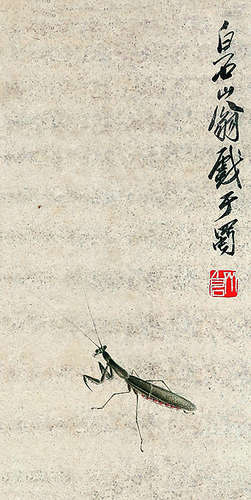 白石山翁戲于蜀